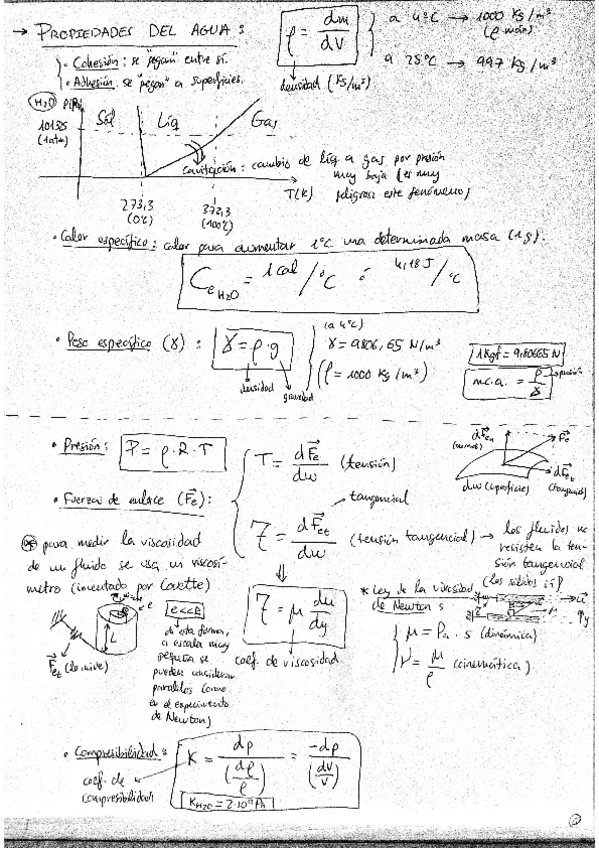 → PROPIEDADES DEL AGUA :
· Cohesión: se "pegan" entre sí.
· Adhesión: se "pegan" a superficies.
ρ = dm/dV
densidad (Kg/m³)
a 4ºC → 1000 Kg/m³
(ρ máx)
a 25ºC → 997 Kg/m³
H₂O
101325
(1 atm)
Sól Líq Gas
cavitación: cambio de líq a gas por presión
muy baja (es muy
peligroso este fenómeno)
T(K)
273,3
(0ºC)
373,3
(100ºC)
· Calor específico: calor para aumentar 1ºC una determinada masa (1g).
C e H₂O = 1 cal/ºC ó 4,18 J/ºC
· Peso específico (γ) : γ = ρ·g
densidad
gravedad
(a 4ºC)
γ = 9806,65 N/m³
(ρ = 1000 Kg/m³)
1Kgf = 9,80665 N
m.c.a. = P/γ
presión
· Presión: P = ρ·R·T
· Fuerzas de enlace (F⃗e):
T = dF⃗e/dω (tensión)
tangencial
τ = dF⃗et/dω (tensión tangencial) → los fluidos no
resisten la ten-
sión tangencial
(los sólidos sí)
dF⃗en
(normal)
F⃗e
dF⃗et
(tangencial)
dω (superficie)
para medir la viscosidad
de un fluido se usa un viscosí-
metro (inventado por Couette)
e
L
F⃗et (lo mueve)
e<<R
de esta forma,
a escala muy
pequeña se
pueden considerar
paralelos (como
en el experimento
de Newton)
τ = μ du/dy
coef. de viscosidad
* Ley de la viscosidad
de Newton
μ = Pa · s (dinámica)
ν = μ/ρ (cinemática)
· Compresibilidad:
coef. de
compresibilidad
K = dp/(dρ/ρ) = -dp/(dV/V)